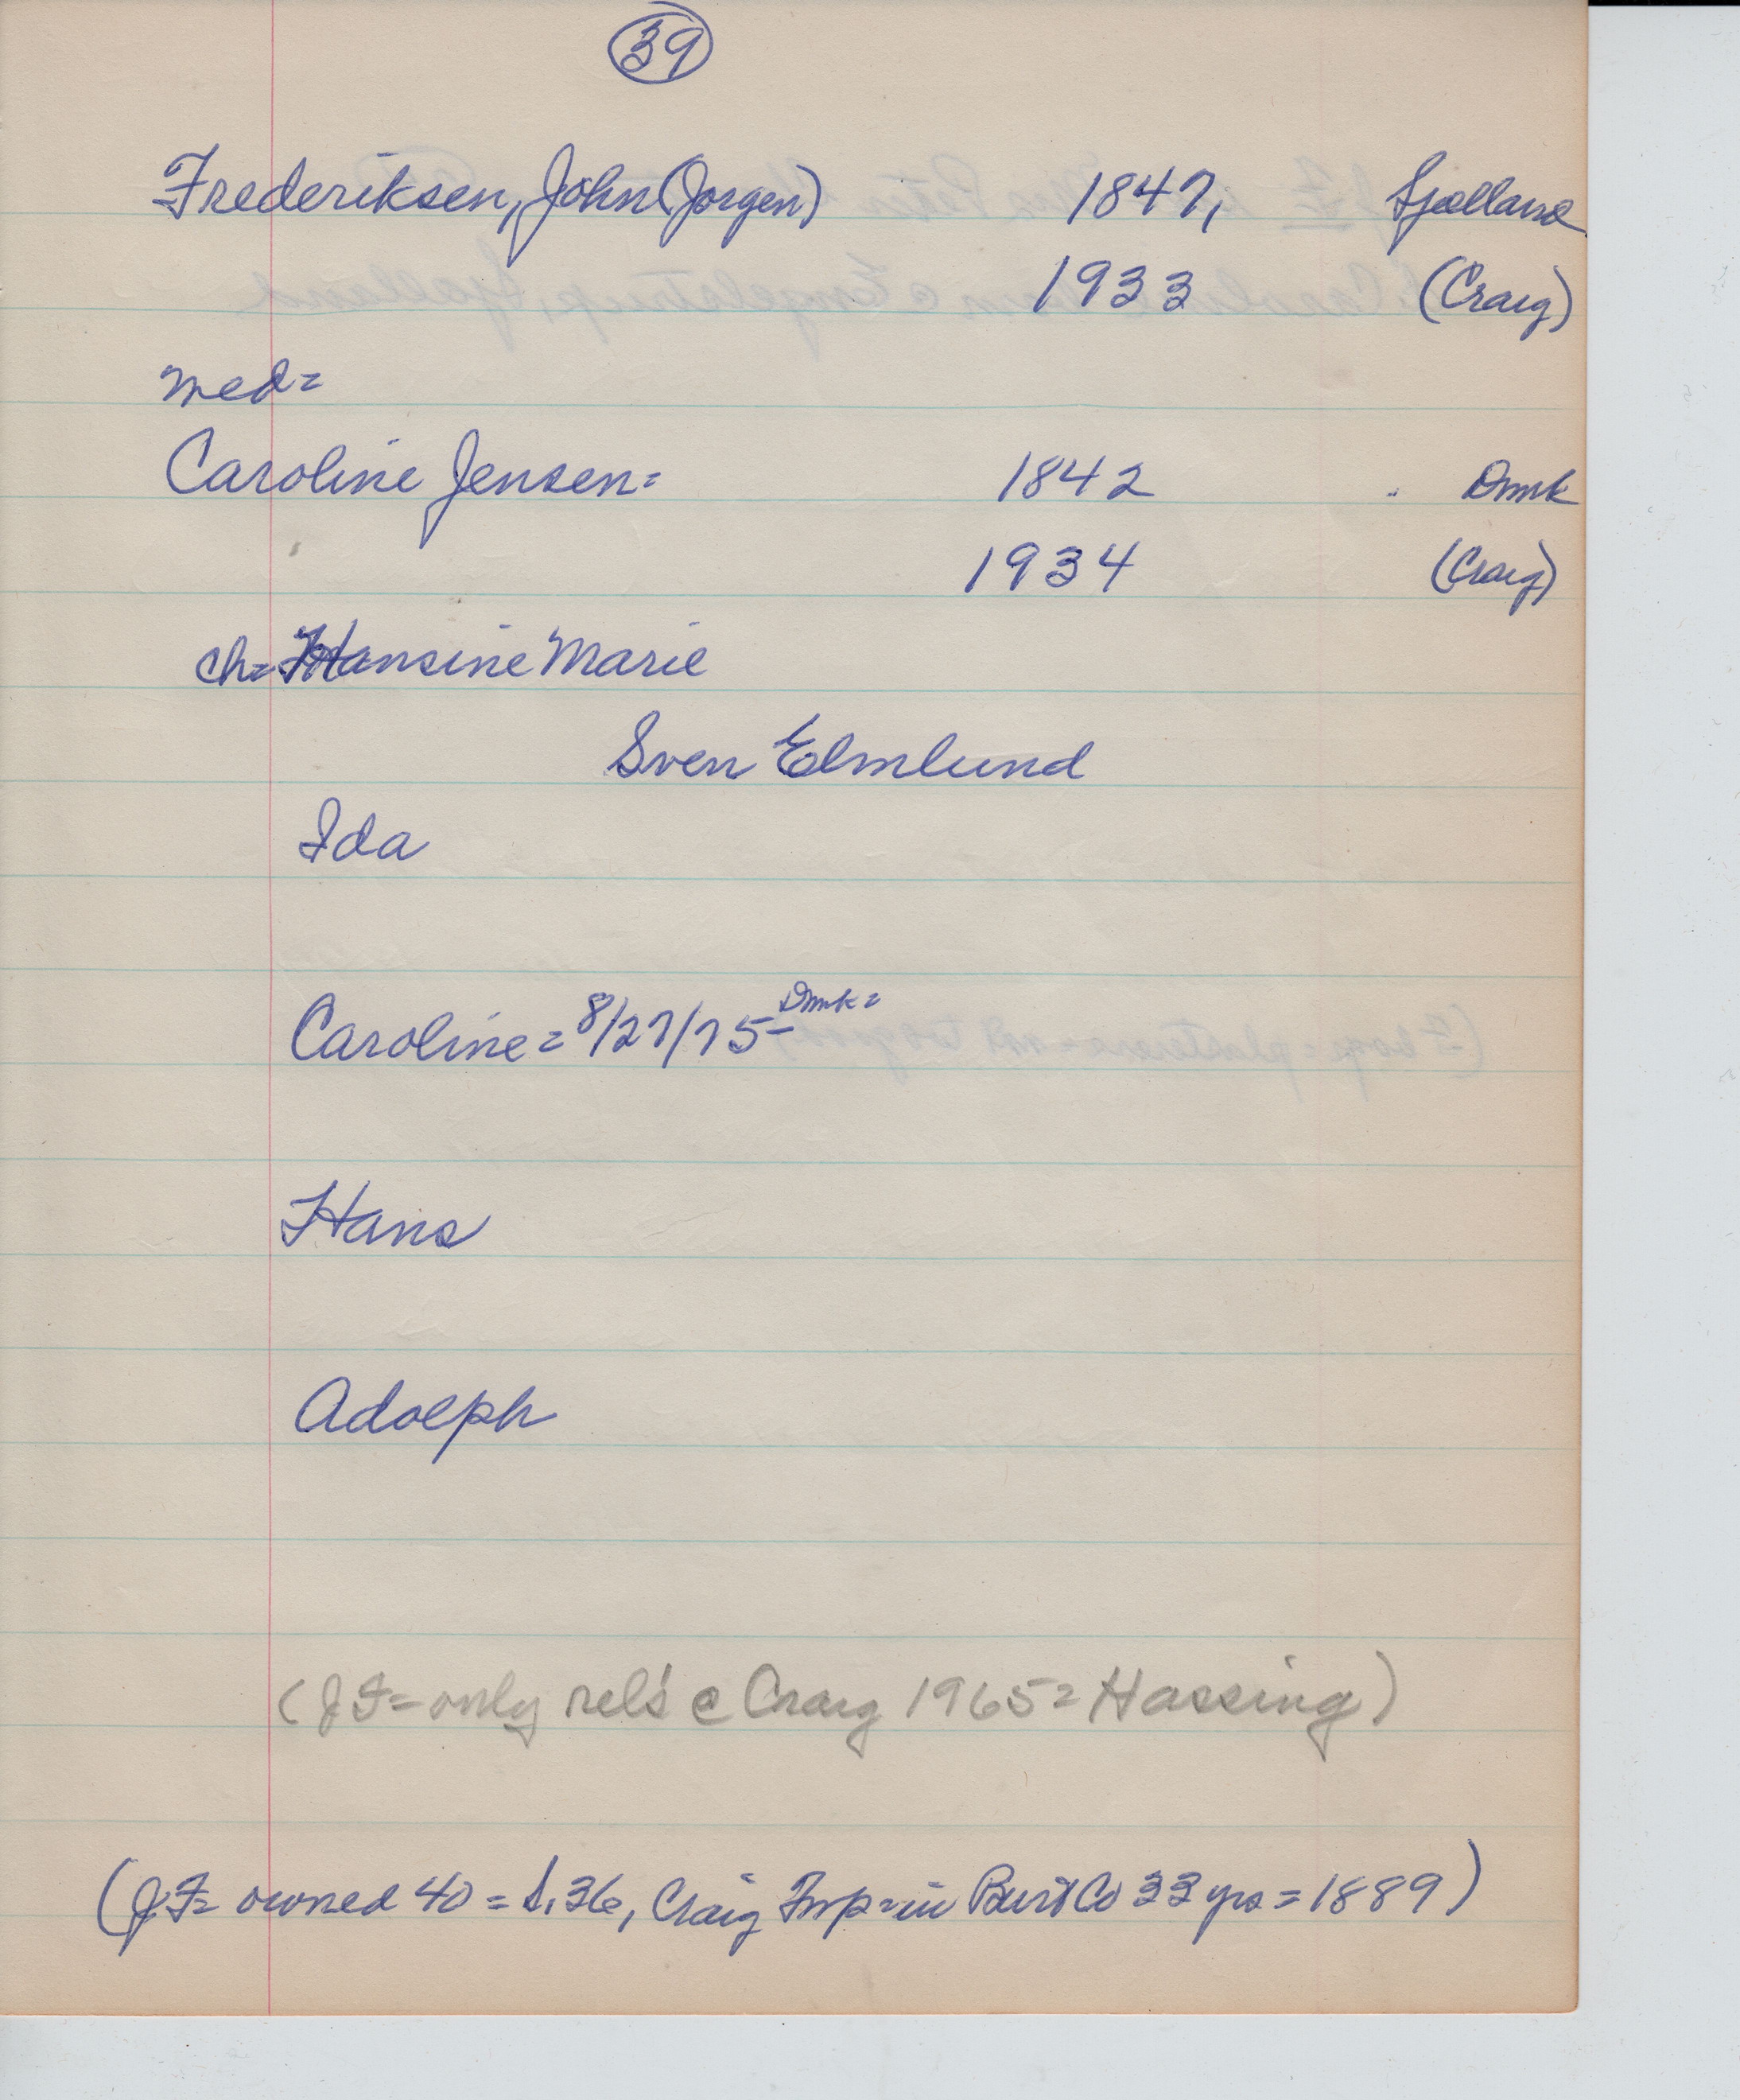 39
Frederiksen, John (Jorgen) 1847, Sjælland
1933 (Craig)
med=
Caroline Jensen= 1842 Dmk
1934 (Craig)
ch= Hansine Marie
Sven Elmlund
Ida
Caroline = 8/27/75- Dmk=
Hans
Adolph
(JF= only rel's @ Craig 1965= Hassing)
(JF= owned 40 = S.36, Craig Twp = in Burt Co 33 yrs = 1889)